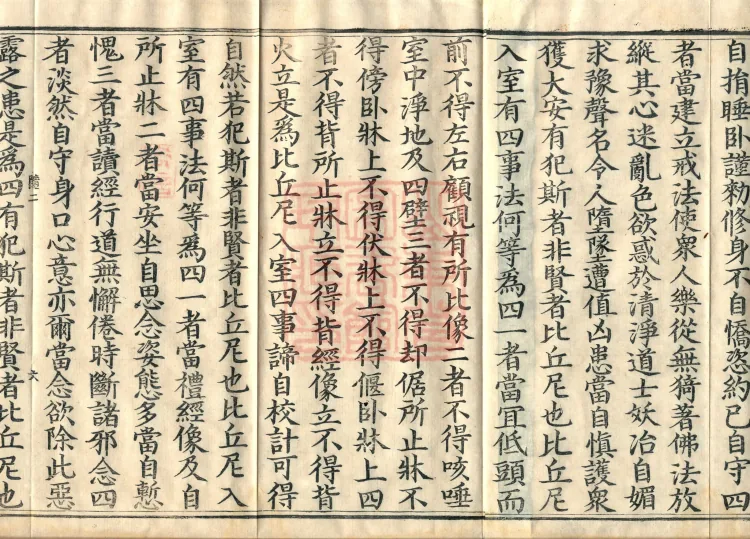 自指睡卧謹勑修身不自憍恣約己自守四
者當建立戒法使衆人樂從無猗著佛法放
縱其心迷亂色欲惑於清淨道士妖冶自媚
求豫聲名令人墮墜遭值凶患當自慎護衆
獲大安有犯斯者非賢者比丘尼也比丘尼
入室有四事法何等爲四一者當宜低頭而
前不得左右顧視有所比像二者不得咳唾
室中淨地及四壁三者不得却倨所止牀不
得傍卧牀上不得伏牀上不得偃卧牀上四
者不得背所止牀立不得背經像立不得背
火立是爲比丘尼入室四事諦自校計可得
自然若犯斯者非賢者比丘尼也比丘尼入
室有四事法何等爲四一者當禮經像及自
所止牀二者當安坐自思念姿態多當自慙
愧三者當讀經行道無懈倦時斷諸邪念四
者淡然自守身口心意亦爾當念欲除此惡
露之患是為四有犯斯者非賢者比丘尼也